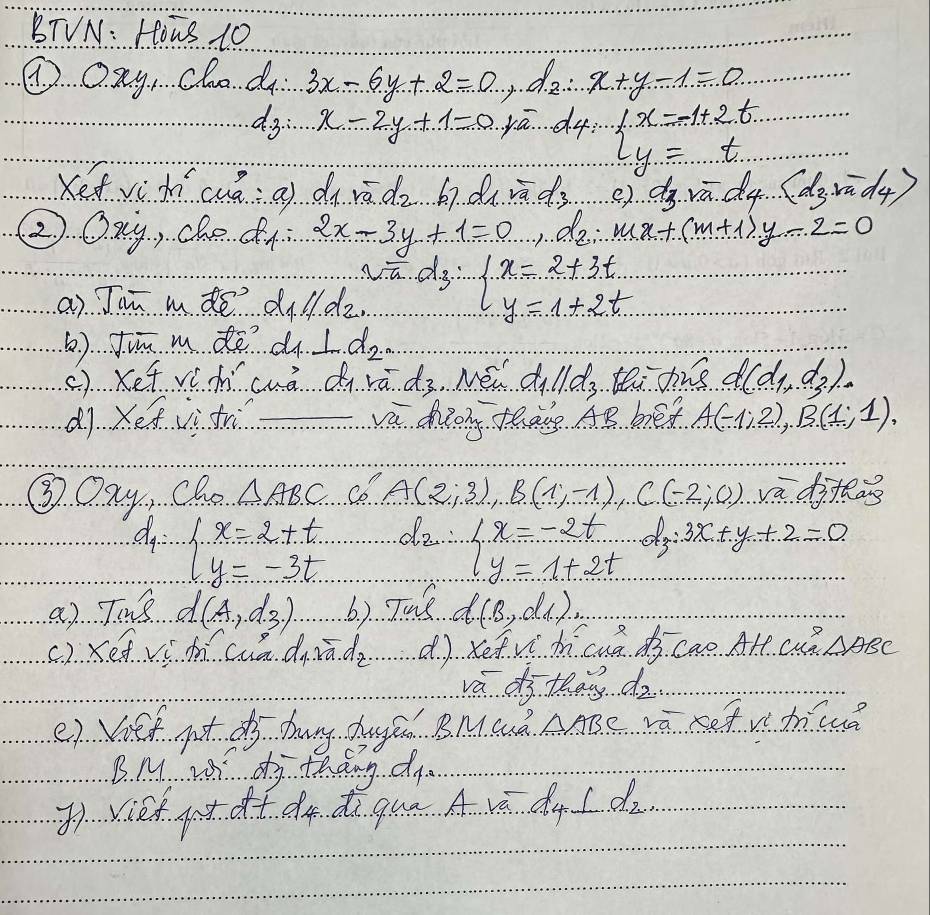 BTVN: Hình 10
① Oxy, cho d1: 3x - 6y + 2 = 0, d2: x + y - 1 = 0
d3: x - 2y + 1 = 0 và d4: { x = -1 + 2t
y = t
Xét vị trí của: a) d1 và d2 b) d1 và d3 c) d3 và d4 <d3 và d4>
② Oxy, cho d1: 2x - 3y + 1 = 0, d2: mx + (m+1)y - 2 = 0
và d3: { x = 2 + 3t
y = 1 + 2t
a) Tìm m để d1 // d2.
b) Tìm m để d1 ⊥ d2.
c) Xét vị trí của d1 và d3. Nếu d1 // d3 thì tính d(d1, d3).
d) Xét vị trí ——— và đường thẳng AB biết A(-1; 2), B(1; 1).
③ Oxy, Cho △ABC có A(2; 3), B(1; -1), C(-2; 0) và đg thẳng
d1: { x = 2 + t d2: { x = -2t d3: 3x + y + 2 = 0
y = -3t y = 1 + 2t
a) Tính d(A, d3) b) Tính d(B, d1).
c) Xét vị trí của d1 và d2 d) Xét vị trí của đg cao AH của △ABC
và đg thẳng d2.
e) Viết pt đg trung tuyến BM của △ABC và xét vị trí của
BM với đg thẳng d1.
f) Viết pt đt d4 đi qua A và d4 ⊥ d2.